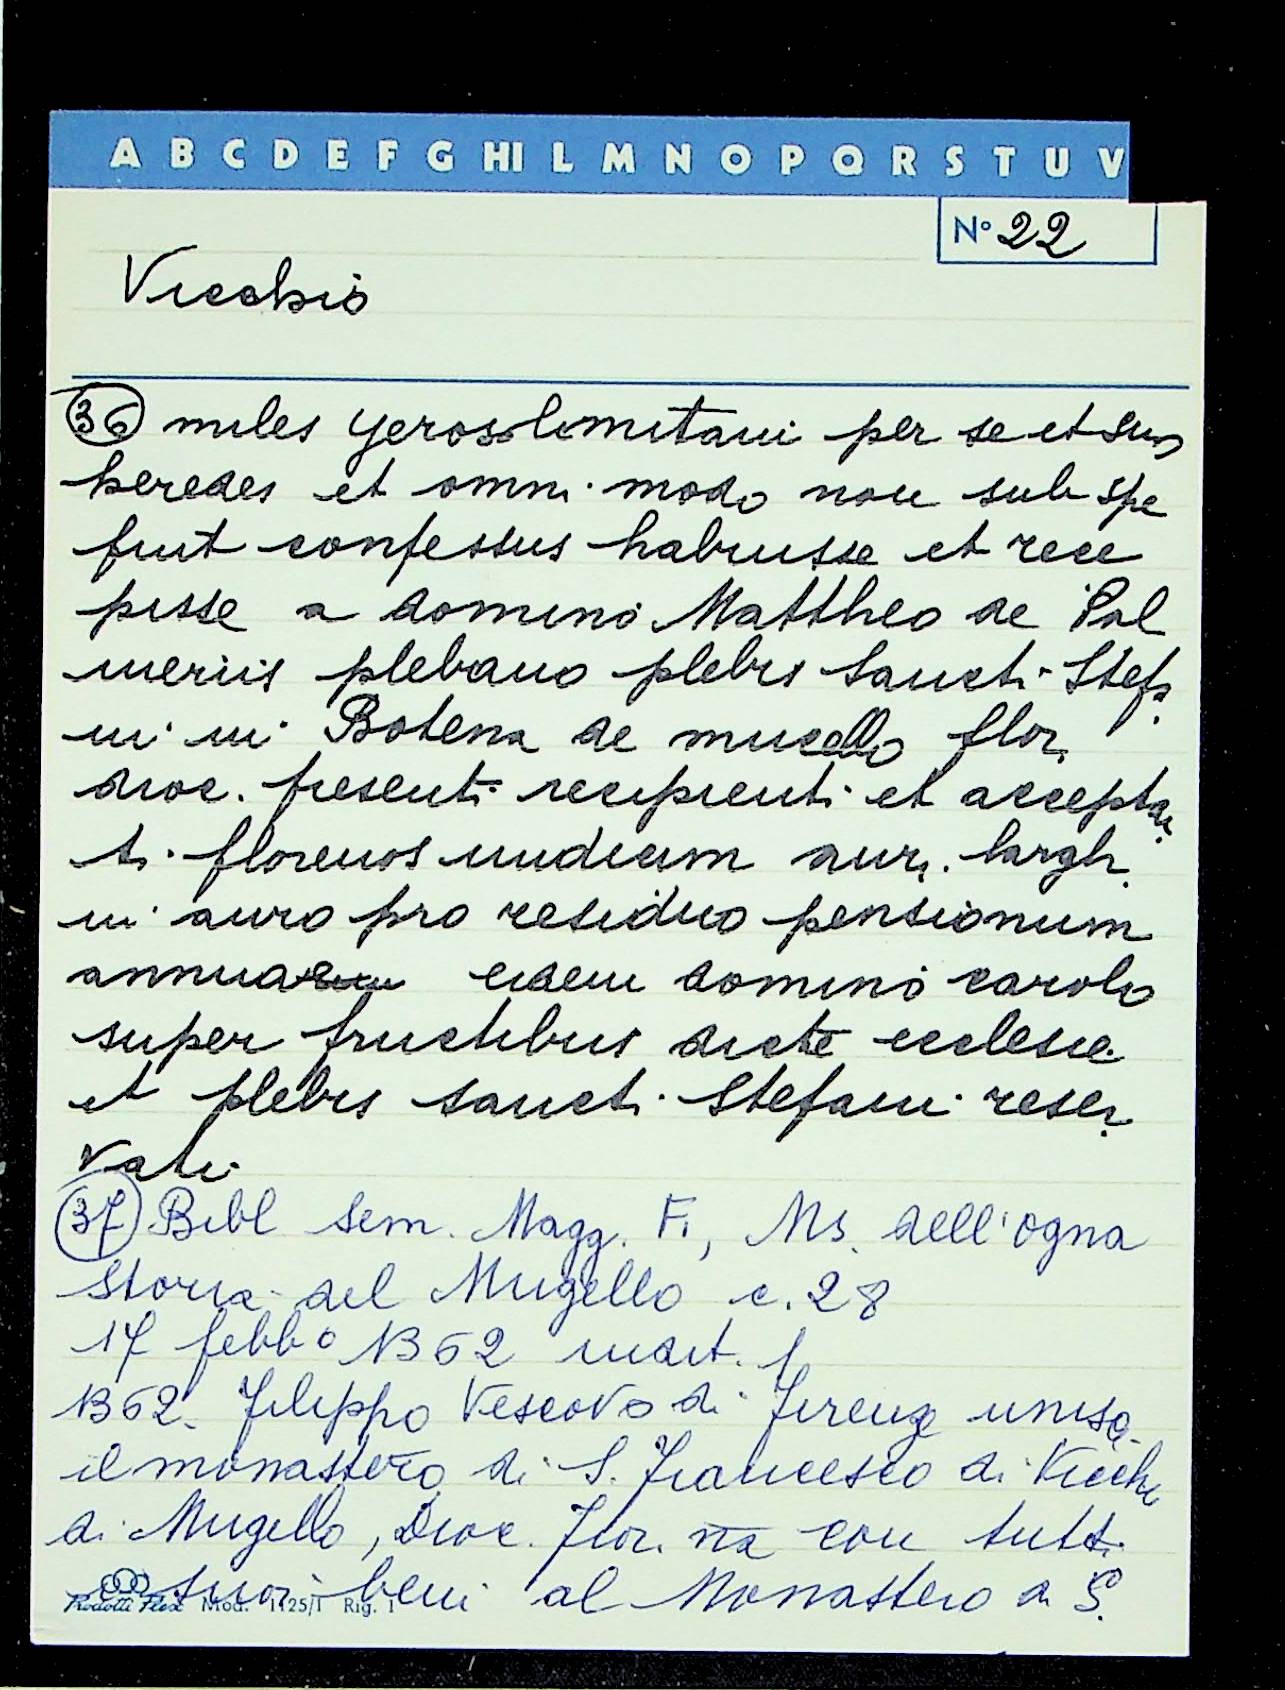 A B C D E F G HI L M N O P Q R S T U V
N° 22
Vicchio
36 miles yerosolimitani per se et suos
heredes et omni modo non sub spe
fuit confessus habuisse et rece
pisse a domino Mattheo de Pal
meriis plebano plebis Sancti Stefa
ni in Botena de mucello flor.
dioc. presenti recipienti et acceptan
ti florenos undicim auri largh.
in auro pro residuo pensionum
annuarum eidem domino carolo
super fructibus dicte ecclesie
et plebis sancti Stefani reser
vati
37 Bibl Sem. Magg. Fi, Ms. dell'ogna
Storia del Mugello c. 28
17 febb° 1362 indit. 1
1362. Filippo Vescovo di Firenze unisce
il monastero di S. Francesco di Vicchio
di Mugello, Dioc. Fior.na con tutti
i suoi beni al Monastero di S.
Prodotti Flex Mod. 1125/1 Rig. 1